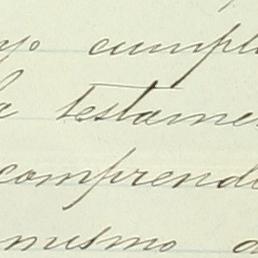 yo cumpli
a testamen
comprende
mismo a